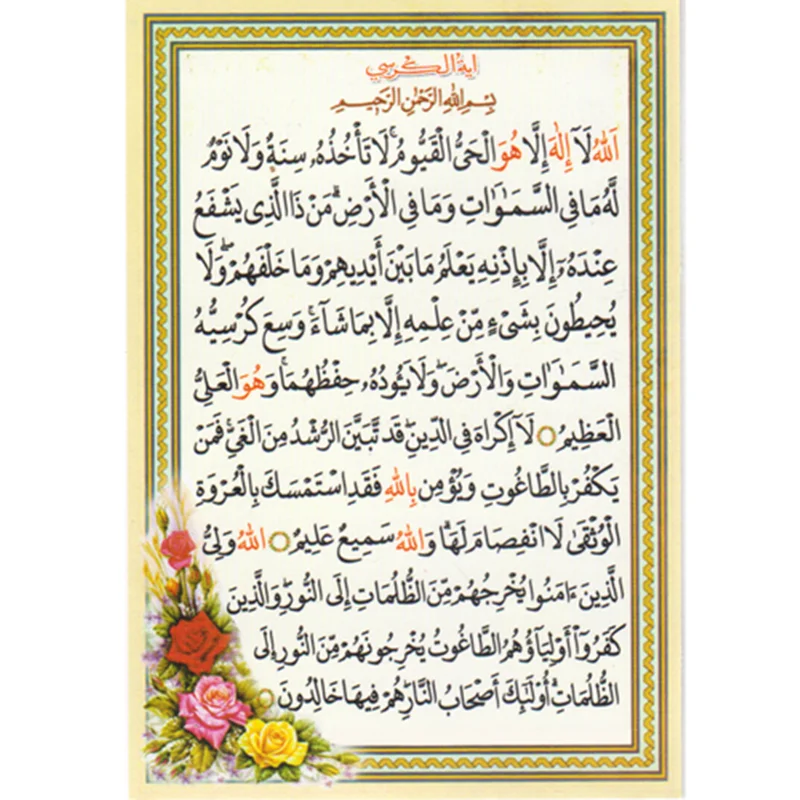 اية الكرسي
بِسْمِ اللهِ الرَّحْمٰنِ الرَّحِيمِ
اَللهُ لَآ إِلٰهَ إِلَّا هُوَ الْحَيُّ الْقَيُّومُ ۚ لَا تَأْخُذُهُ ۥ سِنَةٌ وَلَا نَوْمٌ
لَّهُ مَا فِي السَّمٰوَاتِ وَمَا فِي الْأَرْضِ ۗ مَنْ ذَا الَّذِي يَشْفَعُ
عِنْدَهُ ۥٓ إِلَّا بِإِذْنِهِ يَعْلَمُ مَا بَيْنَ أَيْدِيهِمْ وَمَا خَلْفَهُمْ ۖ وَلَا
يُحِيطُونَ بِشَيْءٍ مِّنْ عِلْمِهِ إِلَّا بِمَا شَآءَ ۚ وَسِعَ كُرْسِيُّهُ
السَّمٰوَاتِ وَالْأَرْضَ ۖ وَلَا يَئُودُهُ ۥ حِفْظُهُمَا ۚ وَهُوَ الْعَلِيُّ
الْعَظِيمُ ۝ لَآ إِكْرَاهَ فِي الدِّينِ ۖ قَد تَّبَيَّنَ الرُّشْدُ مِنَ الْغَيِّ ۚ فَمَنْ
يَكْفُرْ بِالطَّاغُوتِ وَيُؤْمِن بِاللهِ فَقَدِ اسْتَمْسَكَ بِالْعُرْوَةِ
الْوُثْقَىٰ لَا انْفِصَامَ لَهَا ۗ وَاللهُ سَمِيعٌ عَلِيمٌ ۝ اللهُ وَلِيُّ
الَّذِينَ ءَامَنُوا يُخْرِجُهُمْ مِّنَ الظُّلُمَاتِ إِلَى النُّورِ ۖ وَالَّذِينَ
كَفَرُوٓا أَوْلِيَآؤُهُمُ الطَّاغُوتُ يُخْرِجُونَهُمْ مِّنَ النُّورِ إِلَى
الظُّلُمَاتِ ۗ أُولَٰٓئِكَ أَصْحَابُ النَّارِ ۖ هُمْ فِيهَا خَالِدُونَ ۝